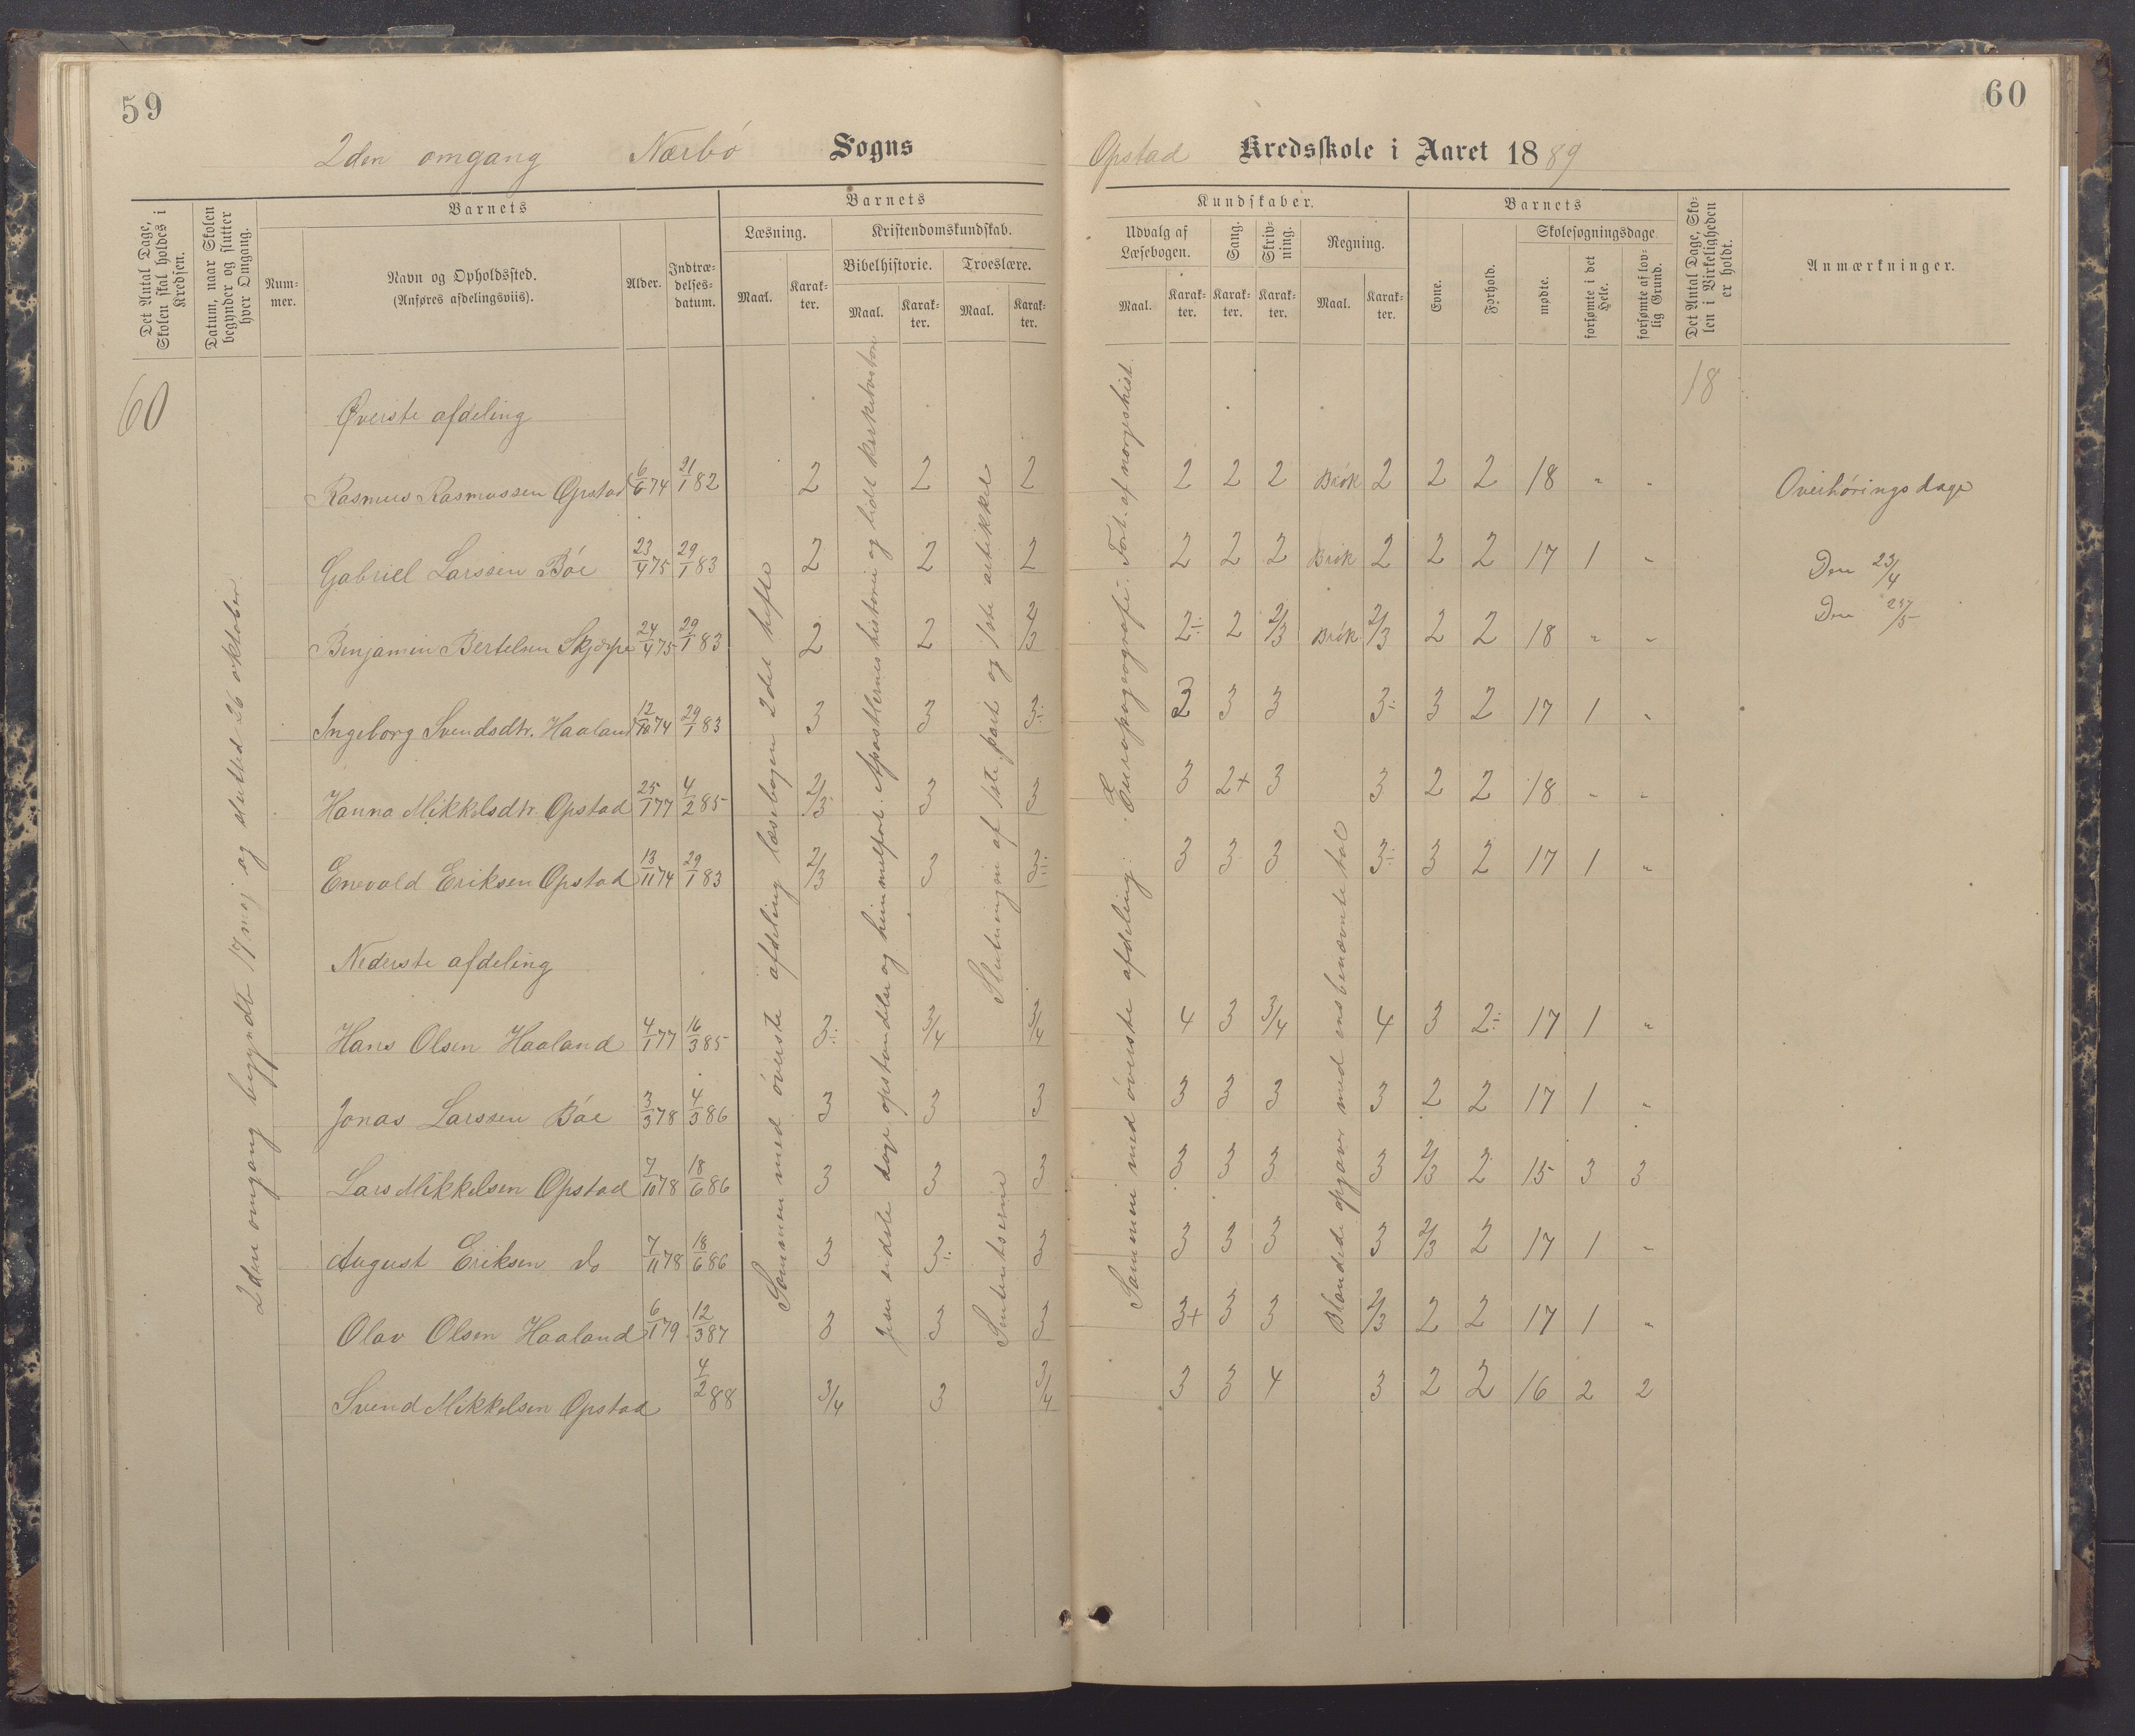 59
60
2den omgang Nærbö Sogns
Opstad Kredsskole i Aaret 1889
Det Antal Dage, Skolen skal holdes i Kredsen.
Datum, naar Skolen begynder og slutter hver Omgang.
Barnets
Nummer.
Navn og Opholdssted.
(Anføres afdelingsviis).
Alder.
Indtrædelsesdatum.
Barnets
Læsning.
Maal. Karakter.
Kristendomskundskab.
Bibelhistorie.
Maal. Karakter.
Troeslære.
Maal. Karakter.
Kundskaber.
Udvalg af Læsebogen.
Maal. Karakter.
Sang. Karakter.
Skrivning. Karakter.
Regning.
Maal. Karakter.
Barnets
Evne.
Forhold.
Skolesøgningsdage.
mødte.
forsømte i det Hele.
forsømte af lovlig Grund.
Det Antal Dage, Skolen i Virkeligheden er holdt.
Anmærkninger.
60
18
2den omgang begyndt 17 mai og sluttet 26 oktober
Øverste afdeling
Rasmus Rasmussen Opstad 6/6 74 21/1 82 2 2 2 2 2 2 Brök 2 2 2 18 " "
Gabriel Larssen Böe 23/4 75 29/1 83 2 2 2 2 2 2 Brök 2 2 2 17 1 "
Benjamin Bertelsen Skjærpe 24/4 75 29/1 83 2 2 2/3 2÷ 2 2/3 Brök 2/3 2 2 18 " "
Ingeborg Svendsdtr. Haaland 12/10 74 29/1 83 3 3 3÷ 3 3 3 3÷ 3 2 17 1 "
Hanna Mikkelsdtr. Opstad 25/1 77 4/2 85 2/3 3 3 3 2+ 3 3 2 2 18 " "
Enevald Eriksen Opstad 13/11 74 29/1 83 2/3 3 3÷ 3 3 3 3÷ 3 2 17 1 "
Nederste afdeling
Hans Olsen Haaland 4/1 77 16/3 85 3÷ 3/4 3/4 4 3 3/4 4 3 2÷ 17 1 "
Jonas Larssen Böe 3/3 78 4/3 86 3 3 3 3 3 3 3 2 2 17 1 "
Lars Mikkelsen Opstad 7/10 78 18/6 86 3 3 3 3 3 3 3 2/3 2 15 3 3
August Eriksen do 7/11 78 18/6 86 3 3÷ 3 3 3 3 3 2/3 2 17 1 "
Olav Olsen Haaland 6/1 79 12/3 87 3 3 3 3+ 3 3 2/3 2 2 17 1 "
Svend Mikkelsen Opstad 4/2 88 3/4 3 3/4 3 3 4 3 2 2 16 2 2
Sammen med överste afdeling læsebogen 2det hefte
Jesu sidste dage opstandelse og himmelfart. Apostlernes historie og lidt kirkehistorie
Slutningen af 1ste part og 1ste artikkel
Sententserne
Sammen med överste afdeling: Europageografi: Fort. af norgeshist.
Blandede opgaver med ensbenævnte tal
Overhöringsdage
Den 23/4
Den 27/5